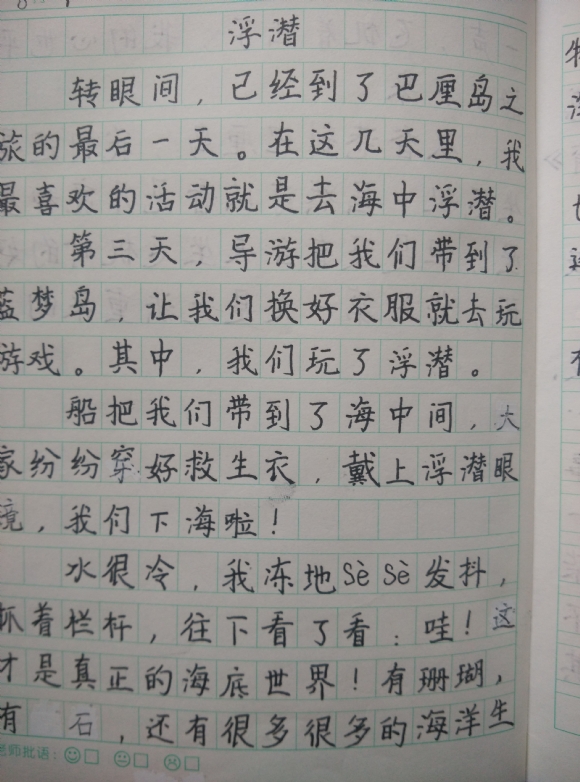 浮潜
转眼间，已经到了巴厘岛之
旅的最后一天。在这几天里，我
最喜欢的活动就是去海中浮潜。
第三天，导游把我们带到了
蓝梦岛，让我们换好衣服就去玩
游戏。其中，我们玩了浮潜。
船把我们带到了海中间，大
家纷纷穿好救生衣，戴上浮潜眼
镜，我们下海啦！
水很冷，我冻地Sè Sè发抖，
抓着栏杆，往下看了看：哇！这
才是真正的海底世界！有珊瑚，
有 石，还有很多很多的海洋生
老师批语：